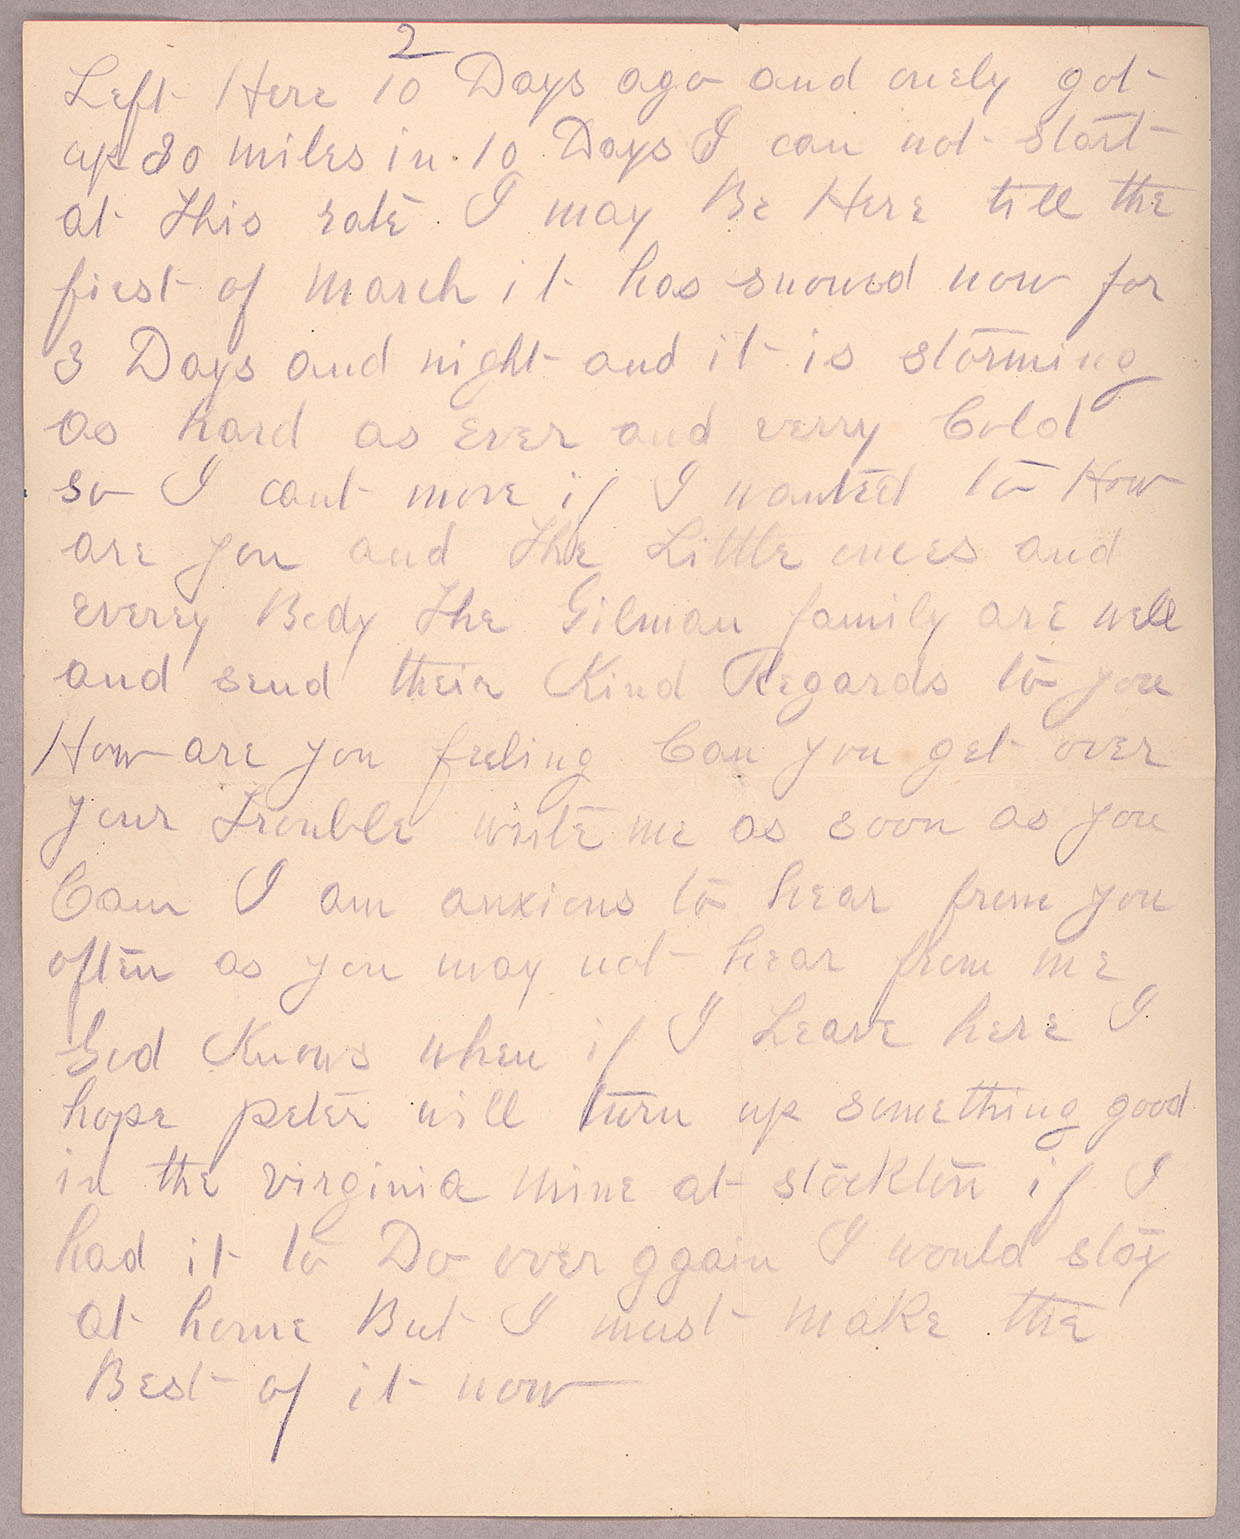 2
Left Here 10 Days ago and onely got
up 30 miles in 10 Days I can not start
at This rate I may Be Here till the
first of March it has snowed now for
3 Days and night and it is storming
as hard as ever and verry Cold
so I cant move if I wanted to How
are you and The Little ones and
everey Body The Gilman family are well
and send their Kind Regards to you
How are you feeling Can you get over
your Trouble write me as soon as you
Cann I am anxious to hear from you
often as you may not hear from me
God Knows when if I Leave here I
hope peter will turn up something good
in the virginia Mine at stockton if I
had it to Do over ggain I would stay
at home But I must make the
Best of it now